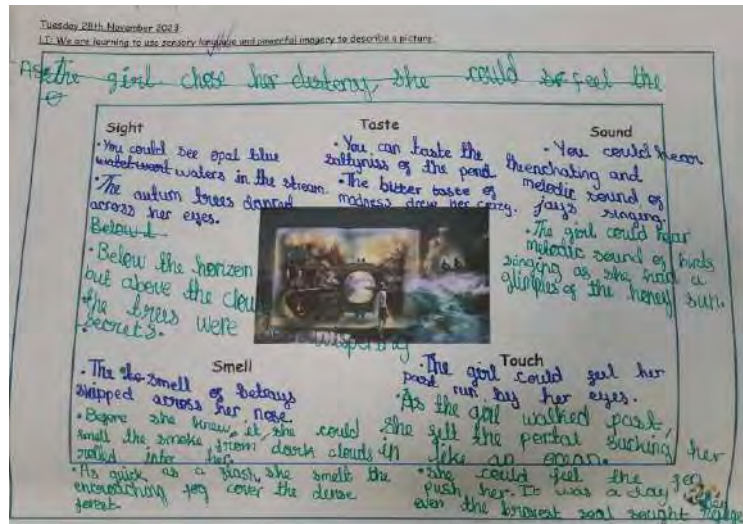 Tuesday 28th November 2023
LI: We are learning to use sensory language and powerful imagery to describe a picture.
As the girl chose her disteny, she could feel the
Sight
• You could see opal blue
waters in the stream.
• The autum trees danced
across her eyes.
• Below the horizon
but above the clou
the trees were wispering
secrets.
Taste
• You can taste the
saltyniss of the pond
• The bitter taste of
madness drew her crazy.
Sound
• You could hear
thenchating and
melodic sound of
jays singing.
• The girl could hear
melodic sound of birds
singing as she had a
glimples of the honey sun.
Smell
• The smell of betrays
skipped across her nose.
• Before she knew it, she could
smell the smoke from dark clouds
rolled into her.
• As quick as a flash, she smelt the
encroaching fog cover the dense
forest.
Touch
• The girl could feel her
past run by her eyes.
• As the girl walked past,
she felt the portal sucking her
in like an ocean.
• She could feel the fog
push her. It was a day
even the bravest soal saught